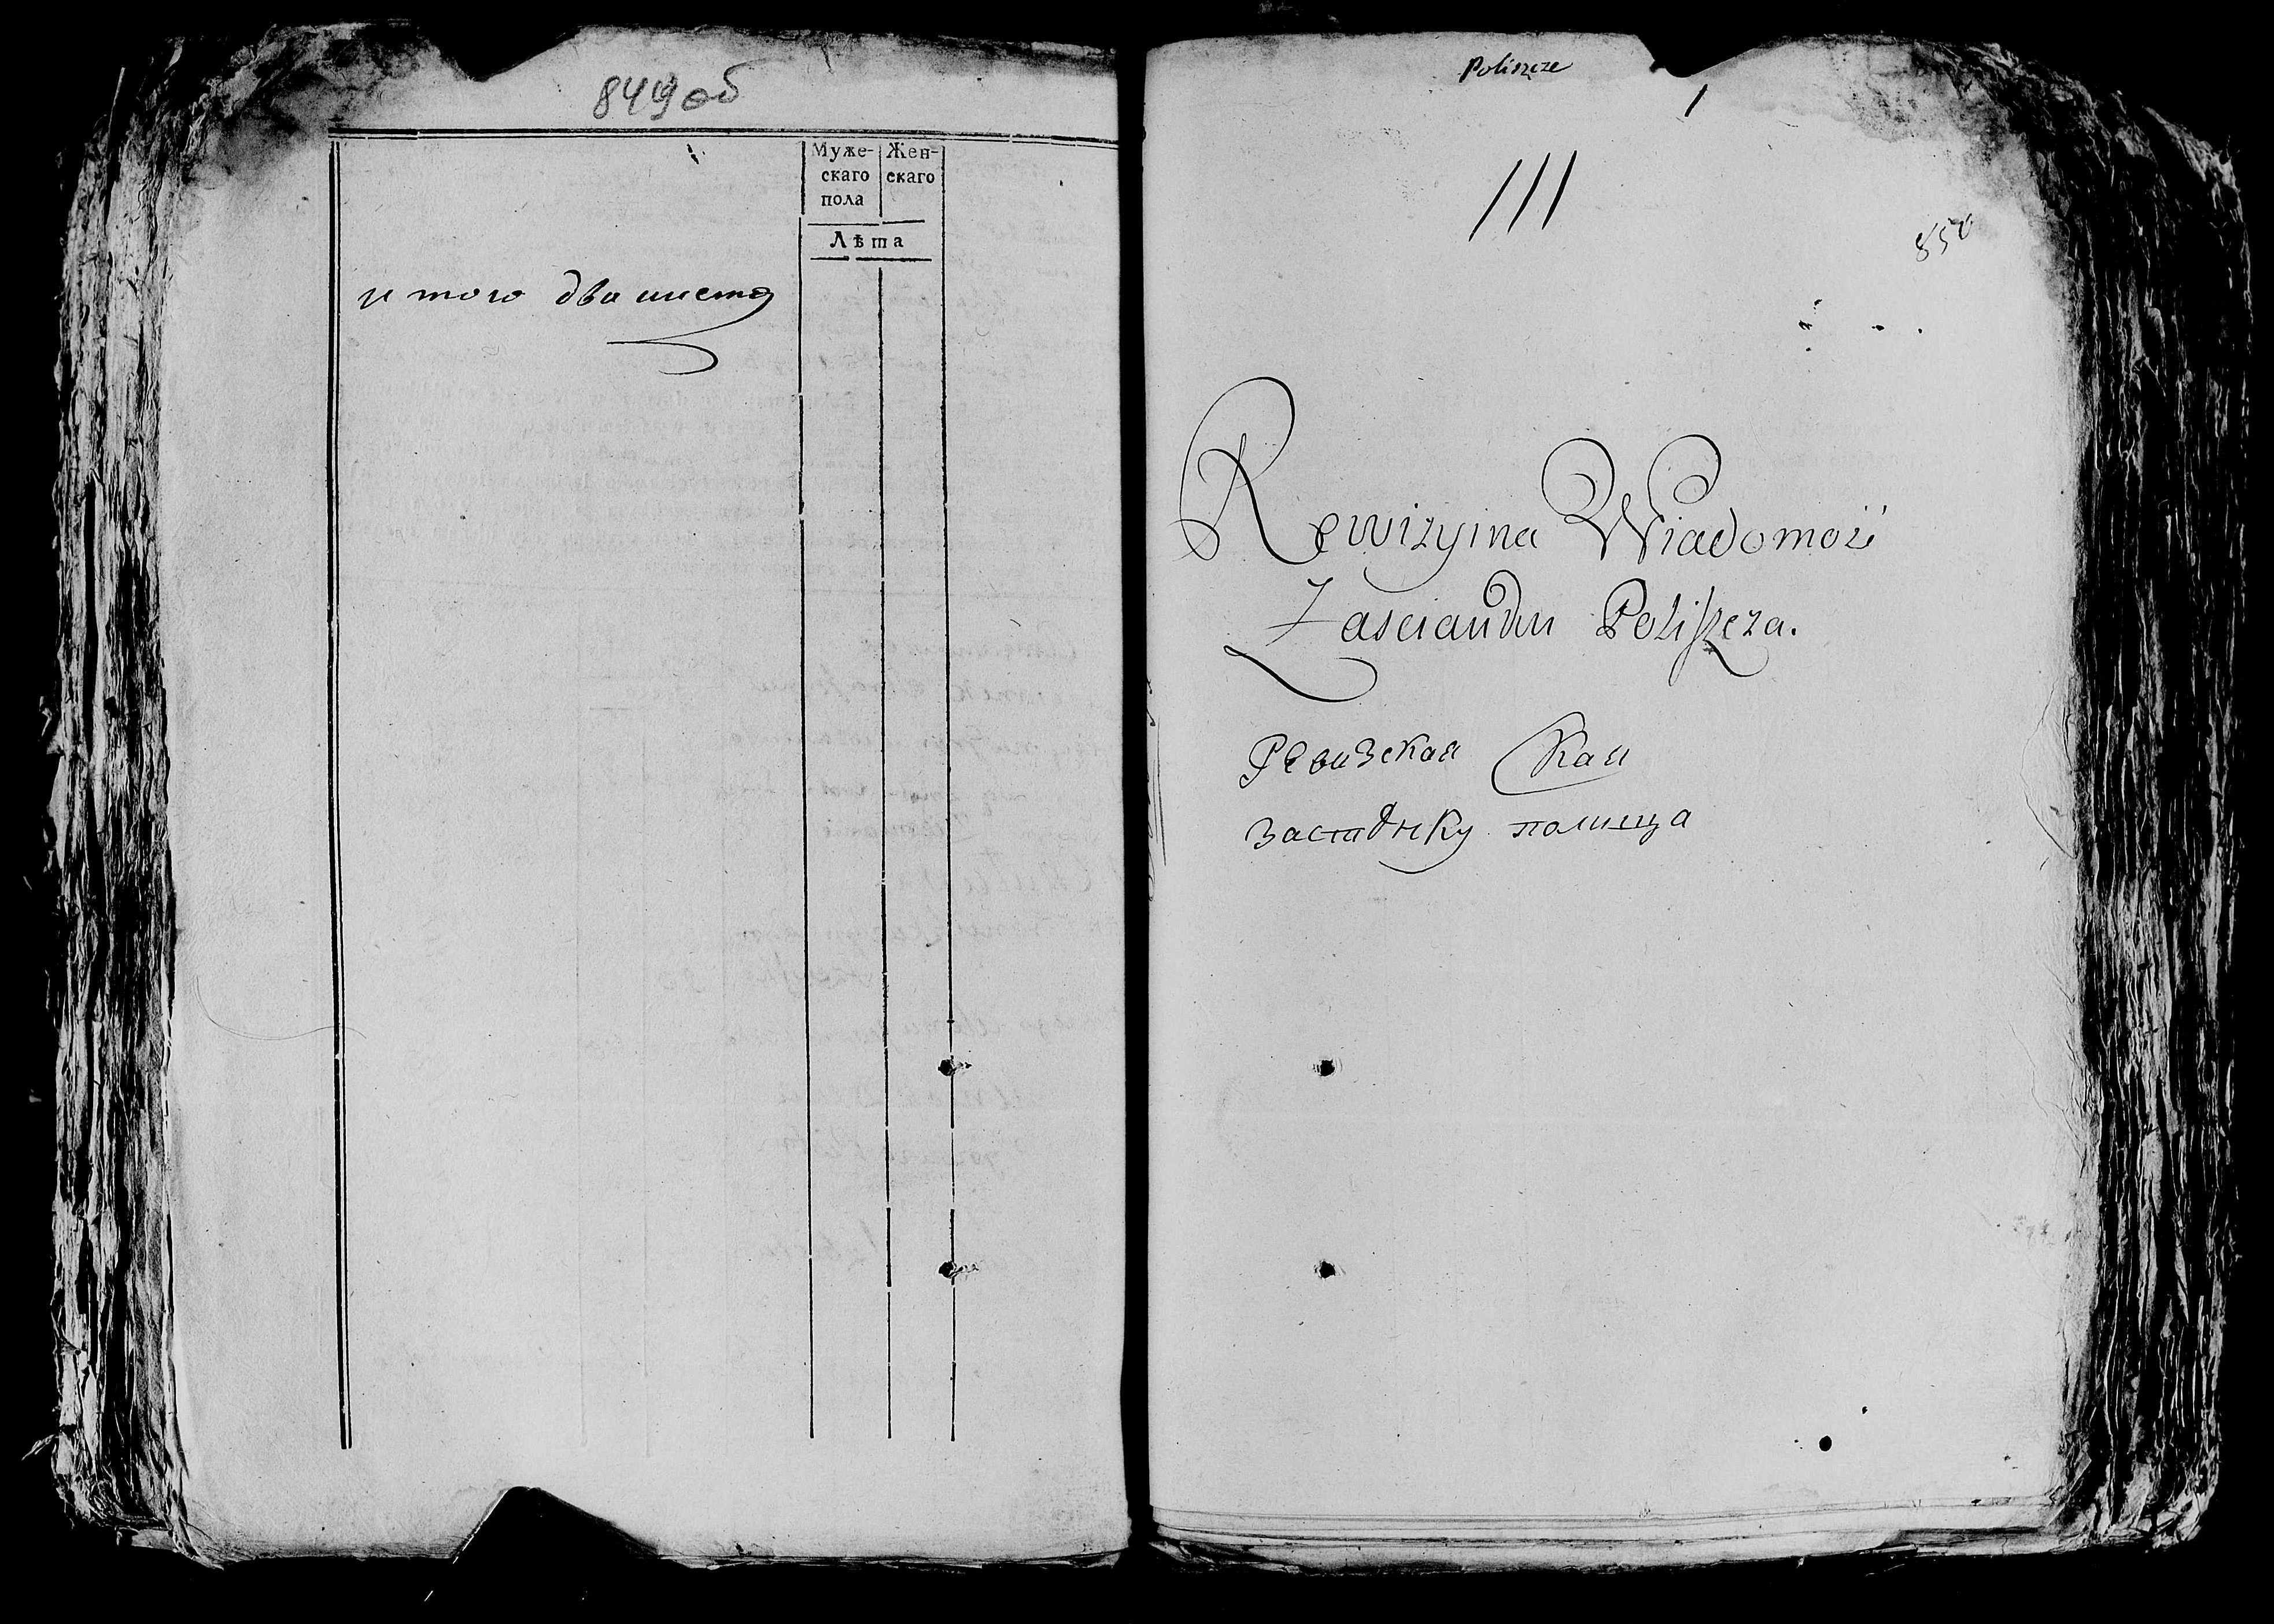 849 об
Муже-
скаго
пола
Жен-
скаго
Лѣта
и того два листа
Poliszcze
1
111
850
Rewizyina Wiadomość
Zascianku Poliszcza.
Ревизская
застѣнку полища